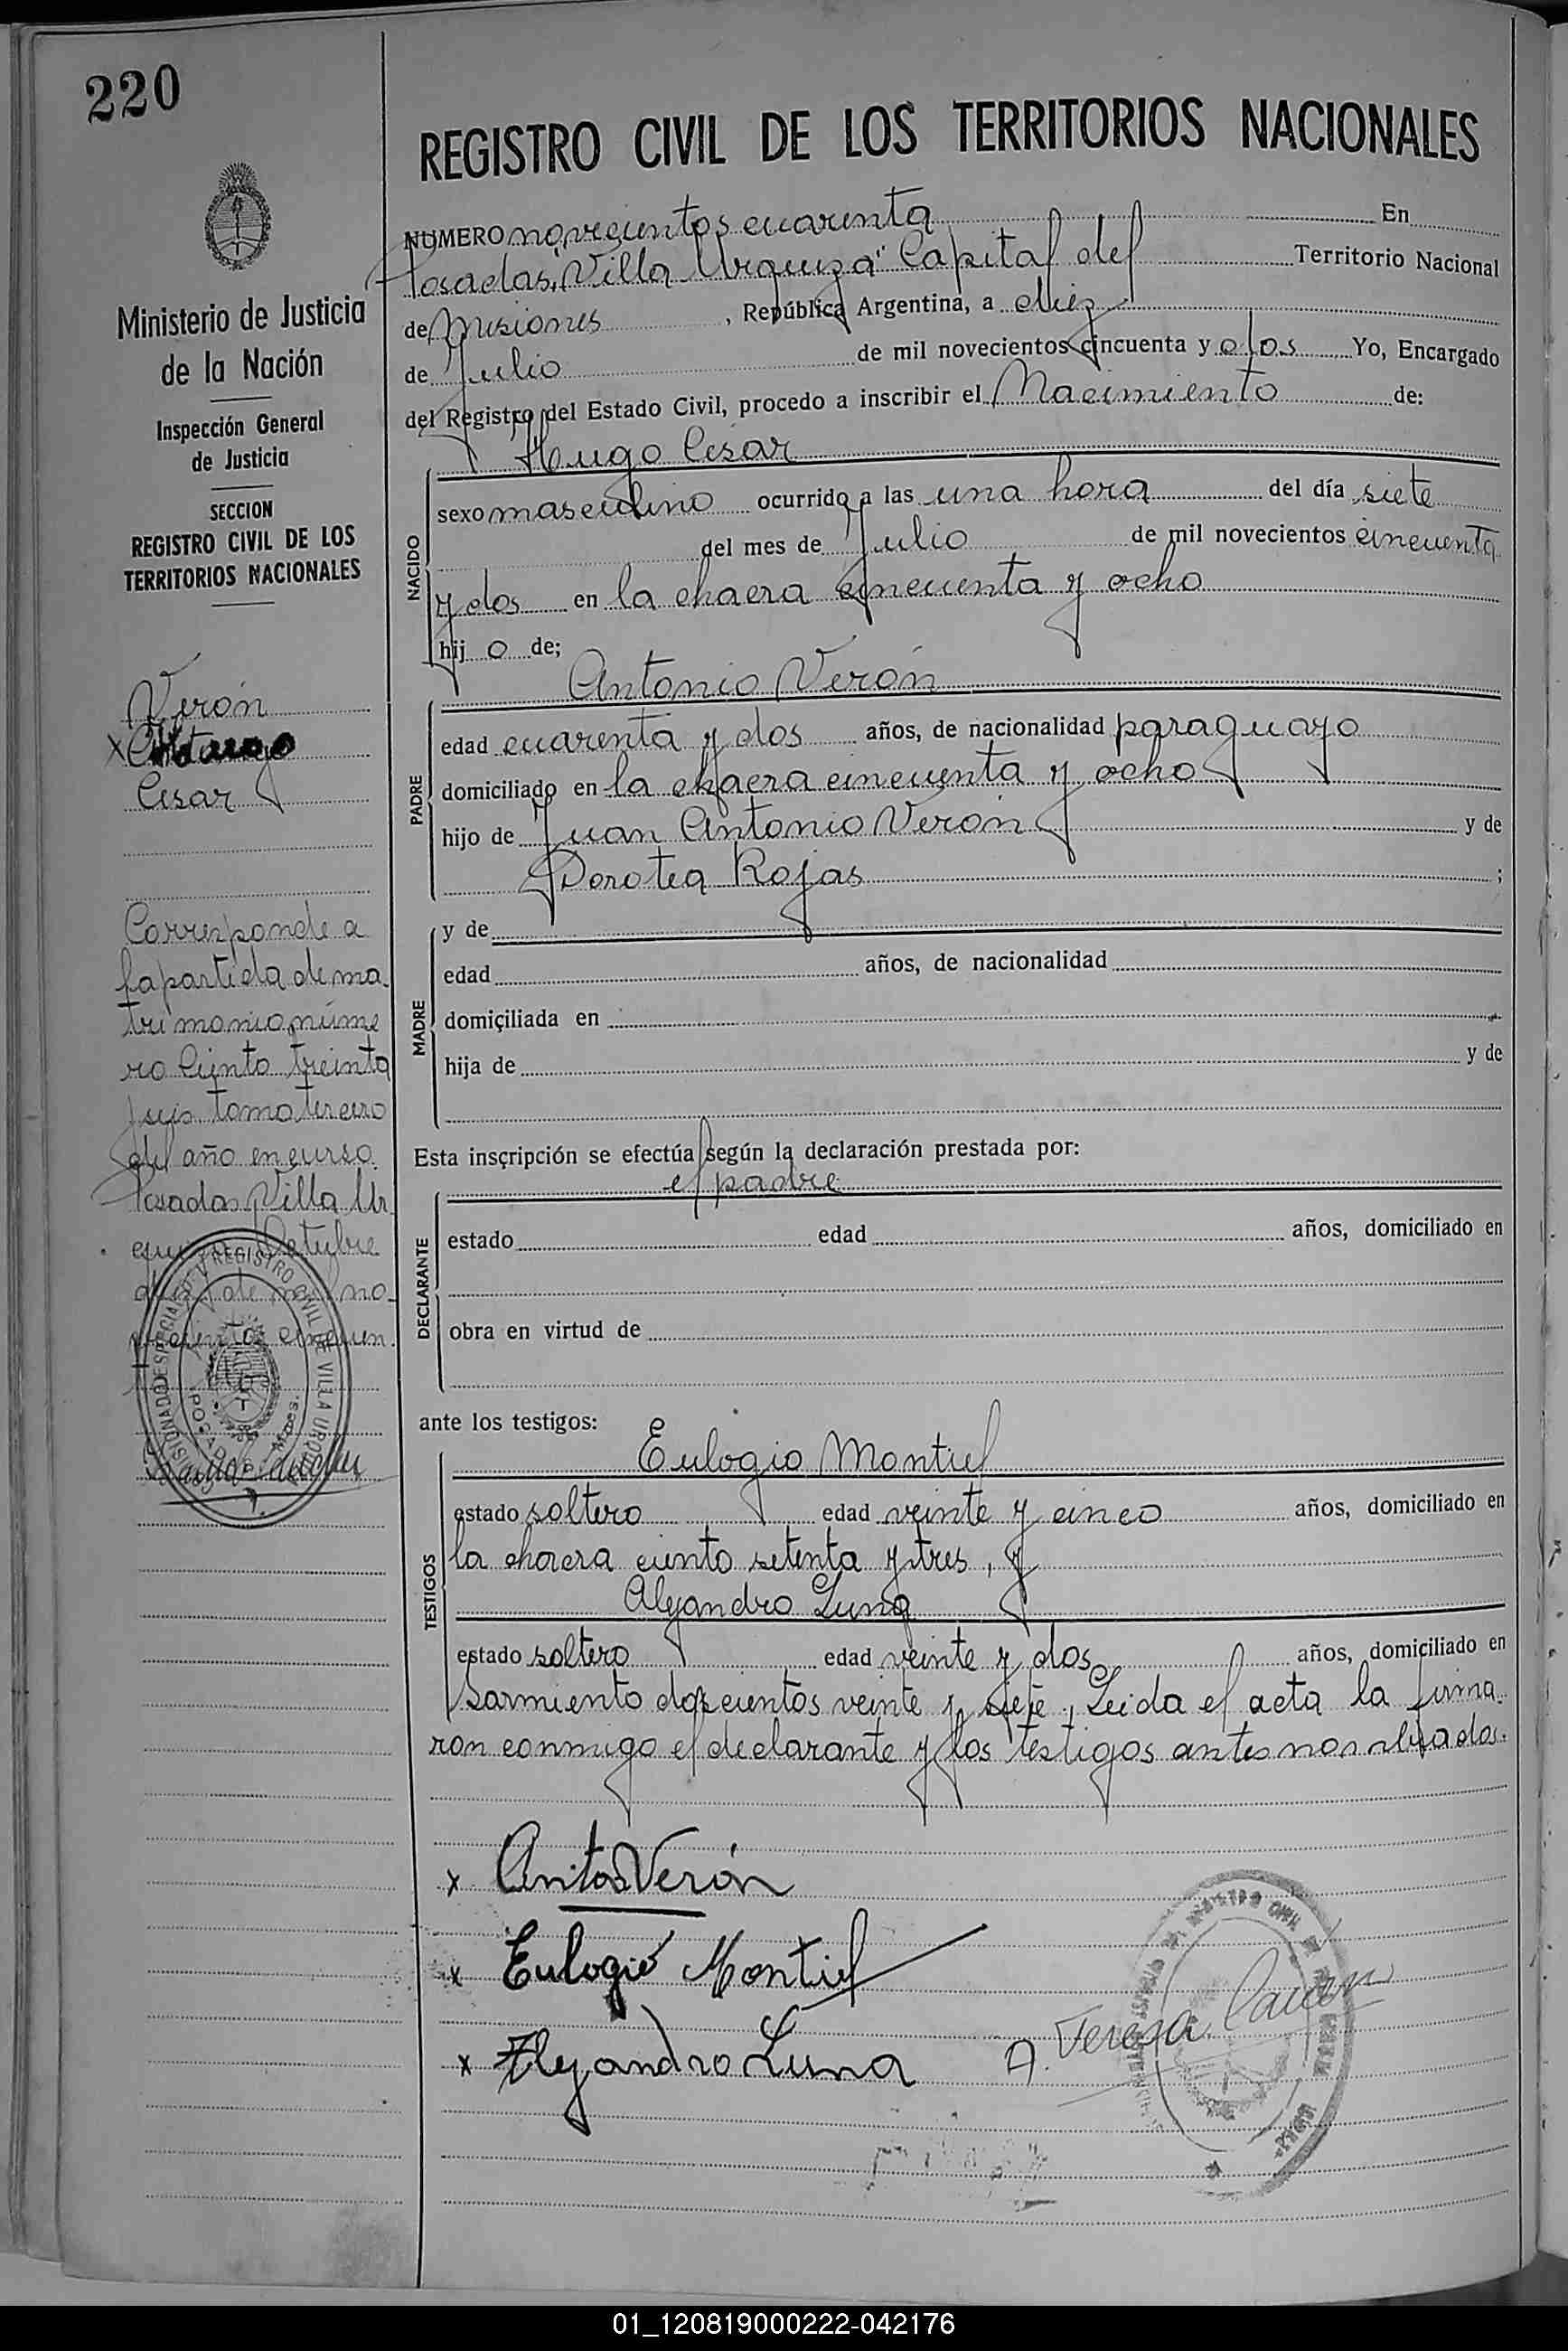 220
REGISTRO CIVIL DE LOS TERRITORIOS NACIONALES
Ministerio de Justicia
de la Nación
Inspección General
de Justicia
SECCION
REGISTRO CIVIL DE LOS
TERRITORIOS NACIONALES
Verón
Cesar
Corresponde a
la partida de ma
trimonio núme
ro Ciento treinta
y seis tomo tercero
del año en curso.
Posadas, Villa Ur
quiza, Octubre
de mil no
vecientos cincuen
NUMERO novecientos cuarenta En
Posadas, "Villa Urquiza" Capital del Territorio Nacional
de Misiones, República Argentina, a diez
de Julio de mil novecientos cincuenta y dos Yo, Encargado
del Registro del Estado Civil, procedo a inscribir el Nacimiento de:
Hugo Cesar
NACIDO
sexo masculino ocurrido a las una hora del día siete
del mes de Julio de mil novecientos cincuenta
y dos en la chacra cincuenta y ocho
hij o de;
Antonio Verón
PADRE
edad cuarenta y dos años, de nacionalidad paraguayo
domiciliado en la chacra cincuenta y ocho
hijo de Juan Antonio Verón y de
Dorotea Rojas ;
MADRE
y de
edad años, de nacionalidad
domiciliada en
hija de y de
Esta inscripción se efectúa según la declaración prestada por:
el padre
DECLARANTE
estado edad años, domiciliado en
obra en virtud de
ante los testigos:
Eulogio Montiel
TESTIGOS
estado soltero edad veinte y cinco años, domiciliado en
la chacra ciento setenta y tres, y
Alejandro Luna
estado soltero edad veinte y dos años, domiciliado en
Sarmiento doscientos veinte y siete. Leida el acta la firma
ron conmigo el declarante y los testigos antes nombrados.
x Verón
x Eulogio Montiel
x Alejandro Luna
A. Teresa
REGISTRO CIVIL DE VILLA URQUIZA
01_120819000222-042176